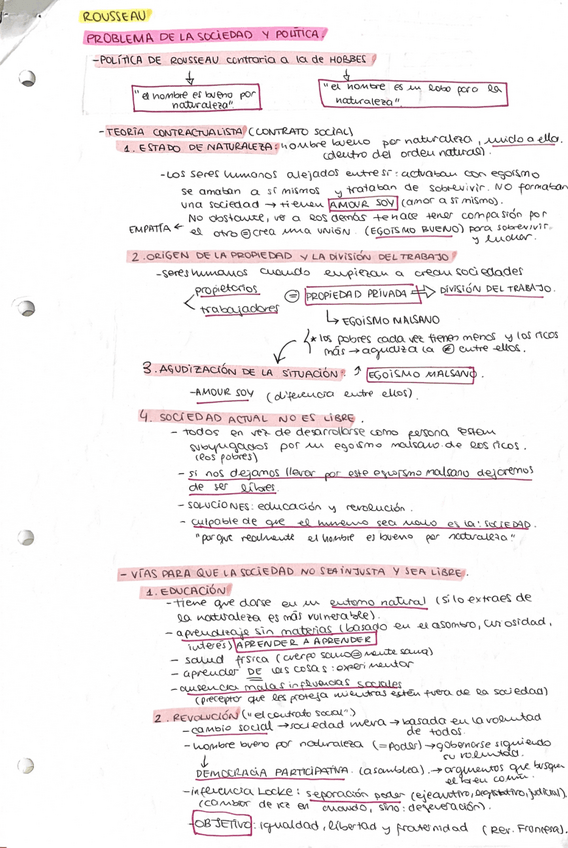 ROUSSEAU
PROBLEMA DE LA SOCIEDAD Y POLÍTICA.
-POLÍTICA DE ROUSSEAU contraria a la de HOBBES
"el hombre es bueno por naturaleza"
"el hombre es un lobo para la naturaleza"
-TEORÍA CONTRACTUALISTA (CONTRATO SOCIAL)
1. ESTADO DE NATURALEZA: hombre bueno por naturaleza, unido a ella.
(dentro del orden natural).
-Los seres humanos alejados entre sí: actuaban con egoísmo
se amaban a sí mismos y trataban de sobrevivir. NO formaban
una sociedad → tienen AMOUR SOY (amor a sí mismo).
No obstante, ve a los demás te hace tener compasión por
EMPATÍA ← el otro = crea una unión. (EGOÍSMO BUENO) para sobrevivir
y luchar.
2. ORIGEN DE LA PROPIEDAD Y LA DIVISIÓN DEL TRABAJO
-seres humanos cuando empiezan a crear sociedades
propietarios
trabajadores
= PROPIEDAD PRIVADA ⇒ DIVISIÓN DEL TRABAJO.
↳ EGOÍSMO MALSANO
* los pobres cada vez tienen menos y los ricos
más → agudiza la ≠ entre ellos.
3. AGUDIZACIÓN DE LA SITUACIÓN: ↑ EGOÍSMO MALSANO.
-AMOUR SOY (diferencia entre ellos).
4. SOCIEDAD ACTUAL NO ES LIBRE.
- TODOS en vez de desarrollarse como persona están
subyugados por un egoísmo malsano de los ricos.
(los pobres)
- si nos dejamos llevar por este egoísmo malsano dejaremos
de ser libres.
- SOLUCIONES: educación y revolución.
- culpable de que el humano sea malo es la: SOCIEDAD.
"porque realmente el hombre es bueno por naturaleza"
- VÍAS PARA QUE LA SOCIEDAD NO SEA INJUSTA Y SEA LIBRE.
1. EDUCACIÓN
-tiene que darse en un entorno natural (si lo extraes de
la naturaleza es más vulnerable).
- aprendizaje sin materias (basado en el asombro, curiosidad,
interés) APRENDER A APRENDER
- salud física (cuerpo sano = mente sana)
- aprender DE las cosas: experimentar
- ausencia malas influencias sociales
(preceptor que les proteja mientras estén fuera de la sociedad)
2. REVOLUCIÓN ("el contrato social")
- cambio social → sociedad nueva → basada en la voluntad
de todos.
- hombre bueno por naturaleza (= poder) → gobernarse siguiendo
su voluntad.
↓
DEMOCRACIA PARTICIPATIVA. (asamblea). → argumentos que busquen
el bien común.
-inferencia Locke: separación poder (ejecutivo, legislativo, judicial).
(cambiar de vez en cuando, sino: degeneración).
- OBJETIVO: igualdad, libertad y fraternidad (Rev. Francesa).